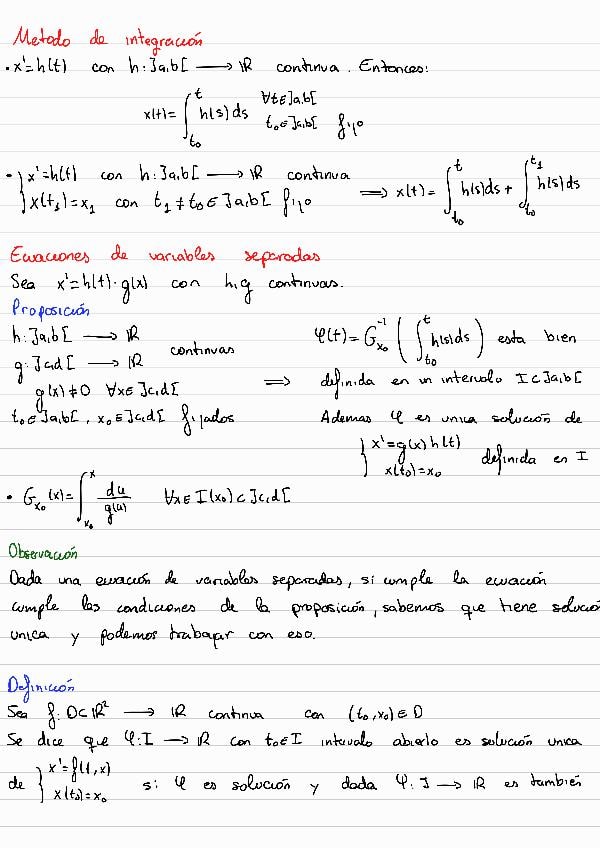 Metodo de integración
• x'=h(t) con h: ]a,b[ ⟶ ℝ continua. Entonces:
x(t) = ∫_{t₀}^{t} h(s) ds ∀t∈]a,b[
t₀∈]a,b[ fijo
• { x'=h(t) con h: ]a,b[ ⟶ ℝ continua
x(t₁)=x₁ con t₁≠t₀∈]a,b[ fijo ⟹ x(t) = ∫_{t₀}^{t} h(s)ds + ∫_{t₀}^{t₁} h(s)ds
Ecuaciones de variables separadas
Sea x'=h(t)·g(x) con h,g continuas.
Proposición
h: ]a,b[ ⟶ ℝ
g: ]c,d[ ⟶ ℝ continuas
g(x)≠0 ∀x∈]c,d[
t₀∈]a,b[, x₀∈]c,d[ fijados
⟹ φ(t) = G_{x₀}^{-1} ( ∫_{t₀}^{t} h(s)ds ) esta bien
definida en un intervalo I⊂]a,b[
Ademas φ es unica solución de
{ x'=g(x)h(t)
x(t₀)=x₀ definida en I
• G_{x₀}(x) = ∫_{x₀}^{x} du/g(u) ∀x∈I(x₀)⊂]c,d[
Observación
Dada una ecuación de variables separadas, si cumple la ecuación
cumple las condiciones de la proposición, sabemos que tiene solució
unica y podemos trabajar con eso.
Definición
Sea f: D⊂ℝ² ⟶ ℝ continua con (t₀,x₀)∈D
Se dice que φ: I ⟶ ℝ con t₀∈I intervalo abierto es solución unica
de { x'=f(t,x)
x(t₀)=x₀ si φ es solución y dada φ: J ⟶ ℝ es también